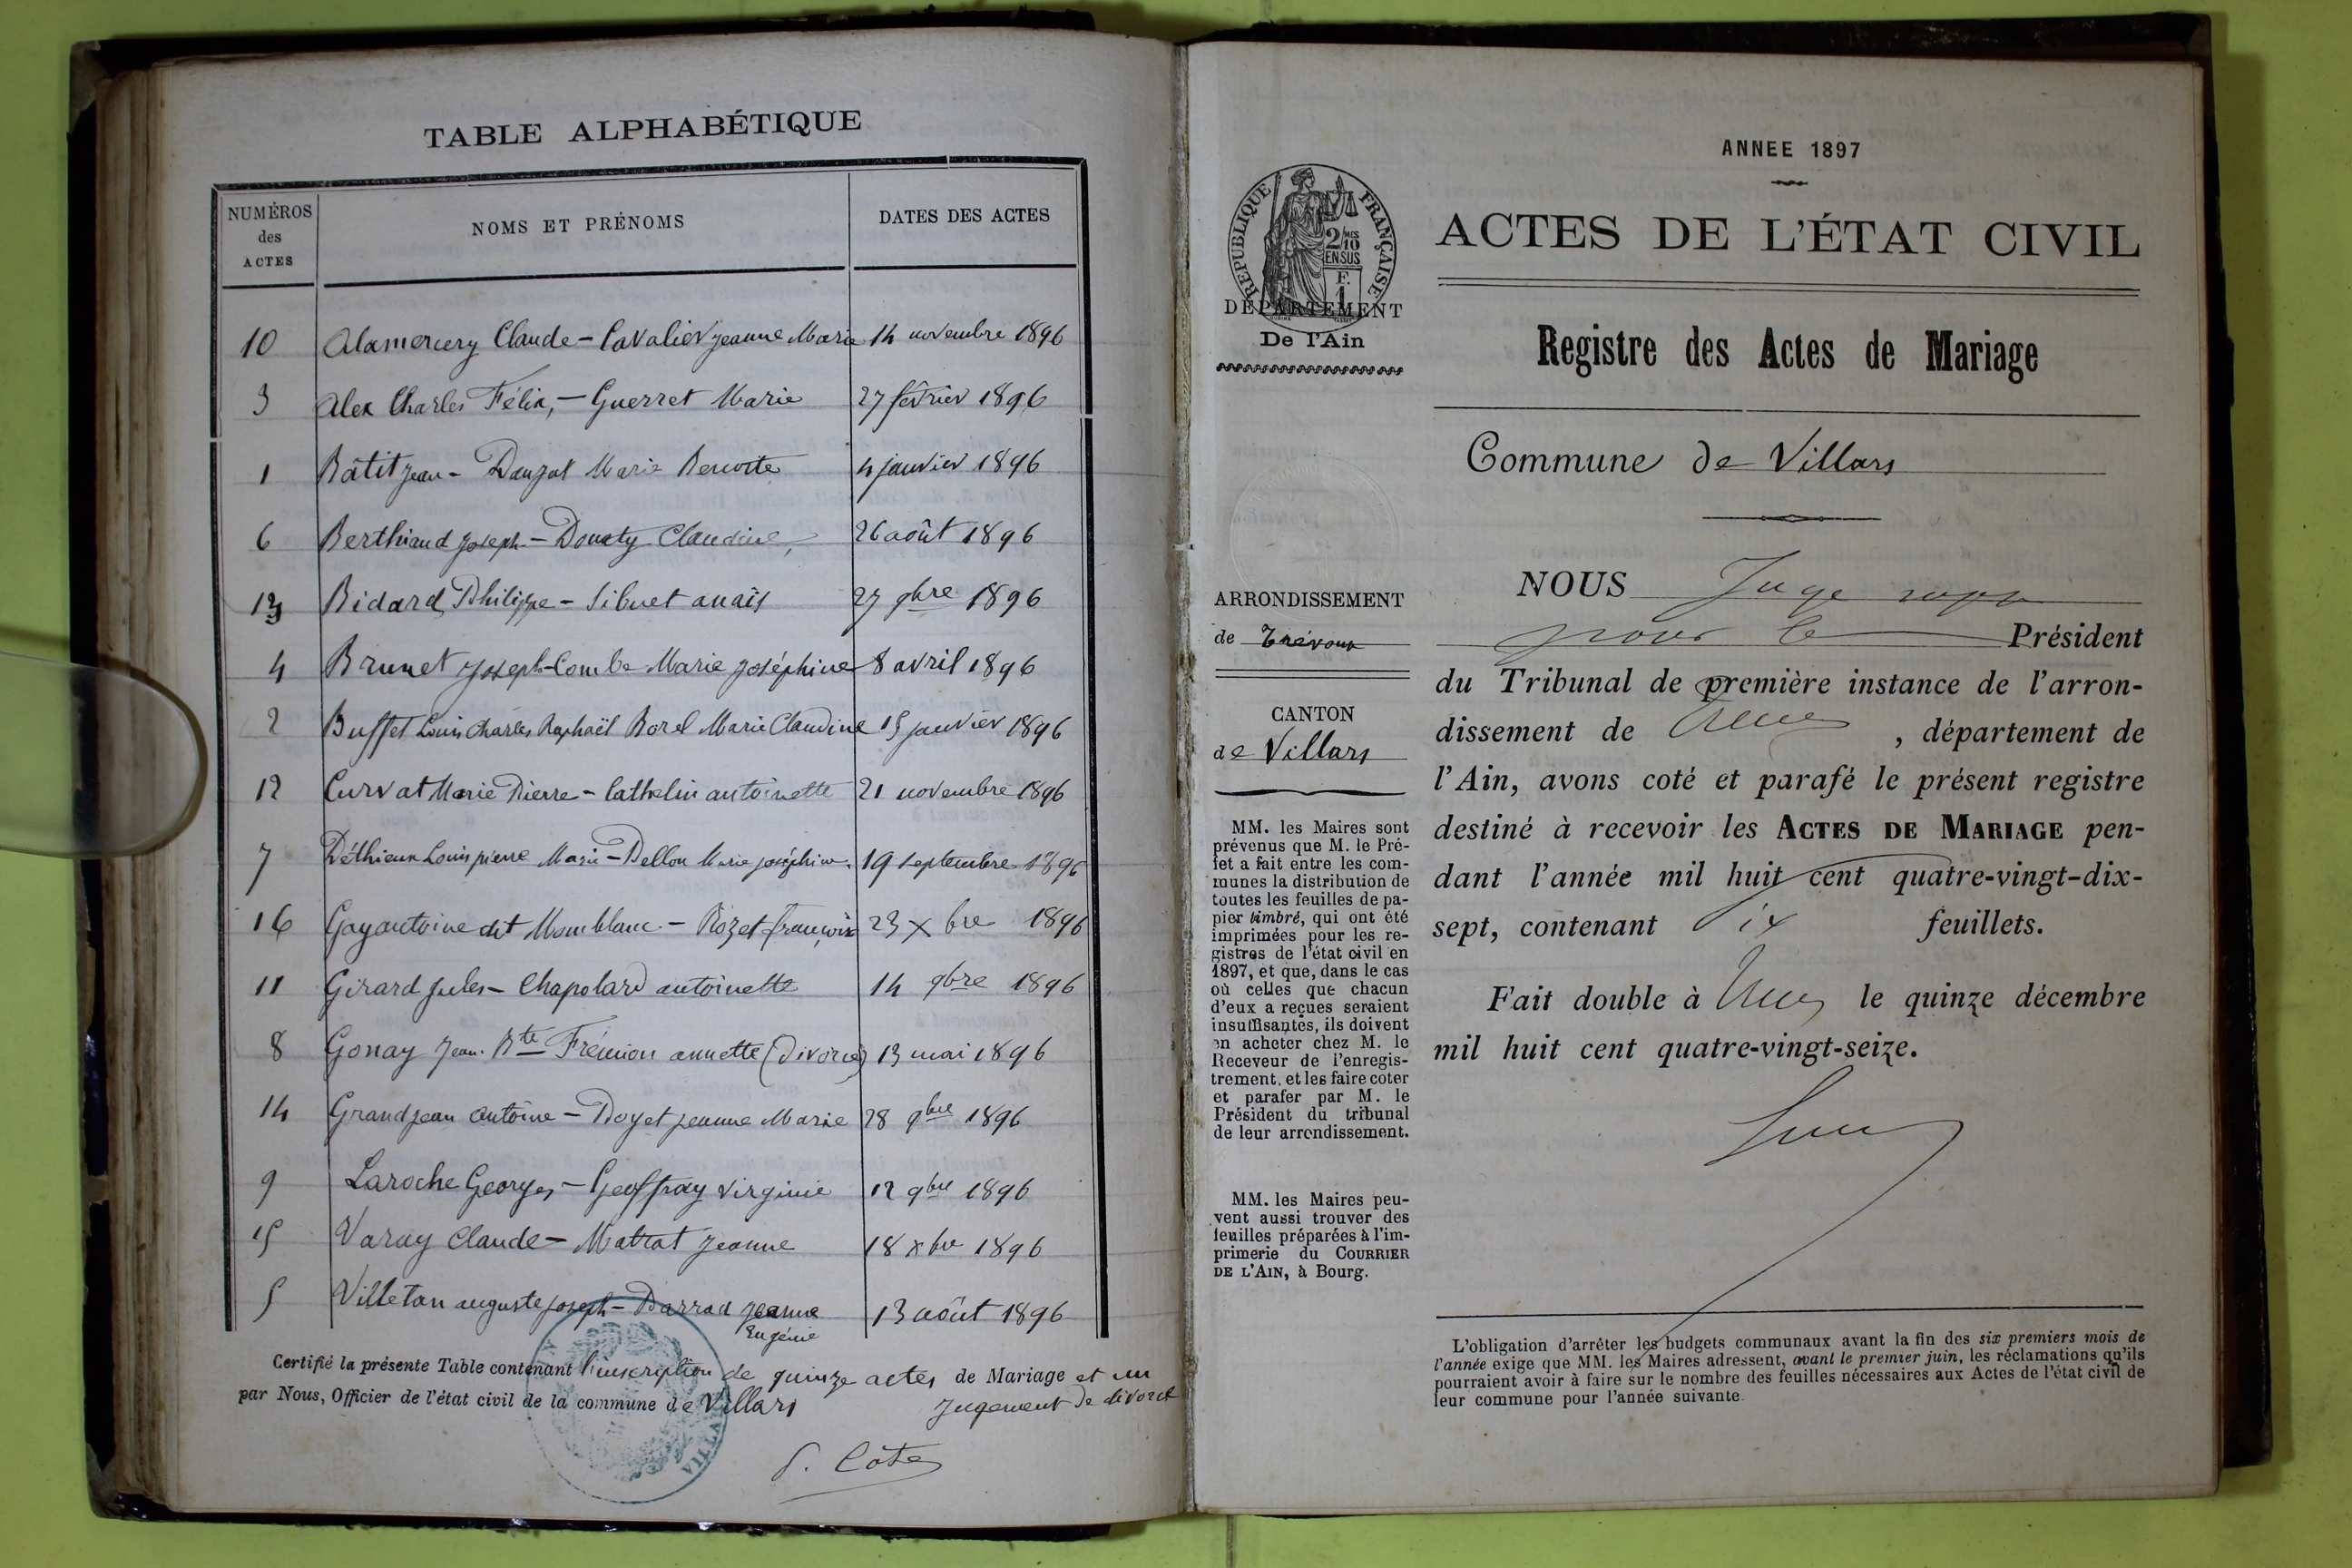 TABLE ALPHABÉTIQUE
NUMÉROS des ACTES
NOMS ET PRÉNOMS
DATES DES ACTES
10 Alamercery Claude - Cavalier Jeanne Marie 14 novembre 1896
3 Alex Charles Félix, - Guerret Marie 27 février 1896
1 Bâtit Jean - Danjat Marie Benoite 4 janvier 1896
6 Berthiaud Joseph - Donaty Claudine, 26 août 1896
13 Bidard Philippe - Sibuet anaïs 27 9bre 1896
4 Brunet Joseph - Combe Marie Joséphine 8 avril 1896
2 Buffet Louis Charles Raphaël Borel Marie Claudine 15 janvier 1896
12 Curvat Marie Pierre - Cathelin antoinette 21 novembre 1896
7 Déthieux Louis pierre Marie - Dellon Marie joséphine. 19 septembre 1896
16 Gay antoine dit Momblanc - Rozet françoise 23 Xbre 1896
11 Girard Jules - Chapolard antoinette 14 9bre 1896
8 Gonay Jean. Bte Frémion annette (divorce) 13 mai 1896
14 Grandjean antoine - Doyet jeanne Marie 28 9bre 1896
9 Laroche Georges - Geoffray virginie 12 9bre 1896
15 Varay Claude - Matrat Jeanne 18 Xbre 1896
5 Villetan auguste joseph - Barrad Jeanne Eugénie 13 août 1896
Certifié la présente Table contenant l'inscription de quinze actes de Mariage et un
par Nous, Officier de l'état civil de la commune de Villars jugement de divorce
VILLA
P. Côte
RÉPUBLIQUE FRANÇAISE
2/10 MES
EN SUS
F.
1
DÉPARTEMENT
De l'Ain
ARRONDISSEMENT
de Trévoux
CANTON
de Villars
MM. les Maires sont
prévenus que M. le Pré-
fet a fait entre les com-
munes la distribution de
toutes les feuilles de pa-
pier timbré, qui ont été
imprimées pour les re-
gistres de l'état civil en
1897, et que, dans le cas
où celles que chacun
d'eux a reçues seraient
insuffisantes, ils doivent
en acheter chez M. le
Receveur de l'enregis-
trement, et les faire coter
et parafer par M. le
Président du tribunal
de leur arrondissement.
MM. les Maires peu-
vent aussi trouver des
feuilles préparées à l'im-
primerie du COURRIER
DE L'AIN, à Bourg.
ANNEE 1897
ACTES DE L'ÉTAT CIVIL
Registre des Actes de Mariage
Commune de Villars
NOUS Juge
pour le Président
du Tribunal de première instance de l'arron-
dissement de , département de
l'Ain, avons coté et parafé le présent registre
destiné à recevoir les ACTES DE MARIAGE pen-
dant l'année mil huit cent quatre-vingt-dix-
sept, contenant feuillets.
Fait double à le quinze décembre
mil huit cent quatre-vingt-seize.
L'obligation d'arrêter les budgets communaux avant la fin des six premiers mois de
l'année exige que MM. les Maires adressent, avant le premier juin, les réclamations qu'ils
pourraient avoir à faire sur le nombre des feuilles nécessaires aux Actes de l'état civil de
leur commune pour l'année suivante.